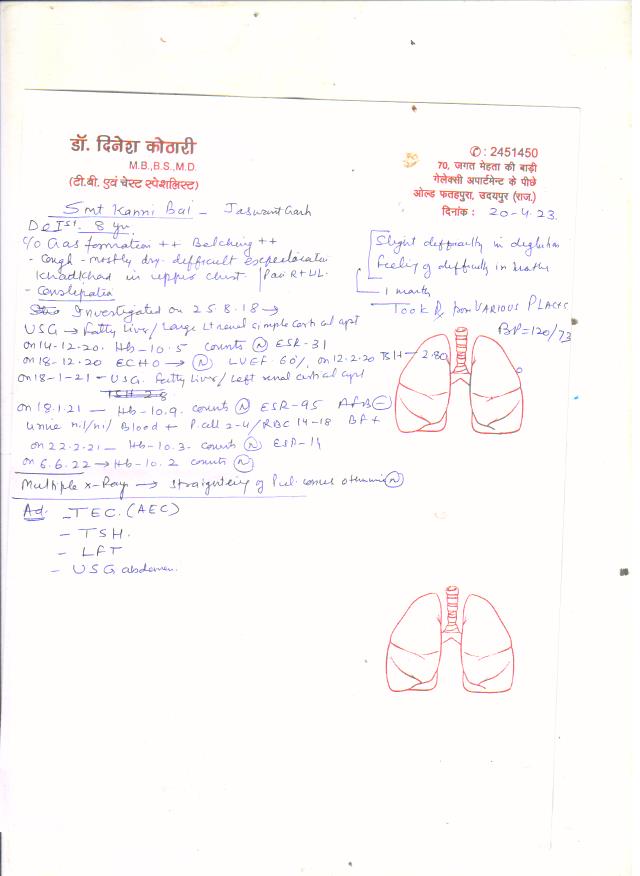 डॉ. दिनेश कोठारी
M.B.,B.S.,M.D.
(टी.बी. एवं चेस्ट स्पेशलिस्ट)
✆ : 2451450
70, जगत मेहता की बाड़ी
गेलेक्सी अपार्टमेन्ट के पीछे
ओल्ड फतहपुरा, उदयपुर (राज.)
दिनांक : 20-4-23
Smt Kanni Bai - Jaswant Garh
8 yr.
c/o Gas formation ++ Belching ++
- Cough - mostly dry - difficult expectoration
Khadkhad in upper chest / Pain R+UL.
- Constipation
Slight difficulty in deglutition
Feeling of difficulty in
1 month
Took Rx from VARIOUS PLACES
BP = 120/73
Investigated on 25.8.18 →
USG → Fatty liver/Large Lt renal simple cortical cyst
on 14-12-20. Hb-10.5 counts (N) ESR-31
on 18-12.20 ECHO → (N) LVEF 60%, on 12-2-20 TSH - 2.80
on 18-1-21 - USG. Fatty liver/Left renal cortical cyst
TSH 2.8
on 18.1.21 - Hb-10.9. counts (N) ESR-95 AFB (-)
Urine nil/nil/ Blood + P.cell 2-4/RBC 14-18
on 22.2.21 - Hb-10.3- counts (N) ESR-14
on 6.6.22 → Hb-10.2 counts (N)
Multiple x-Ray → straightening of Pul. conus otherwise (N)
Ad. - TEC. (AEC)
- TSH.
- LFT
- USG abdomen.